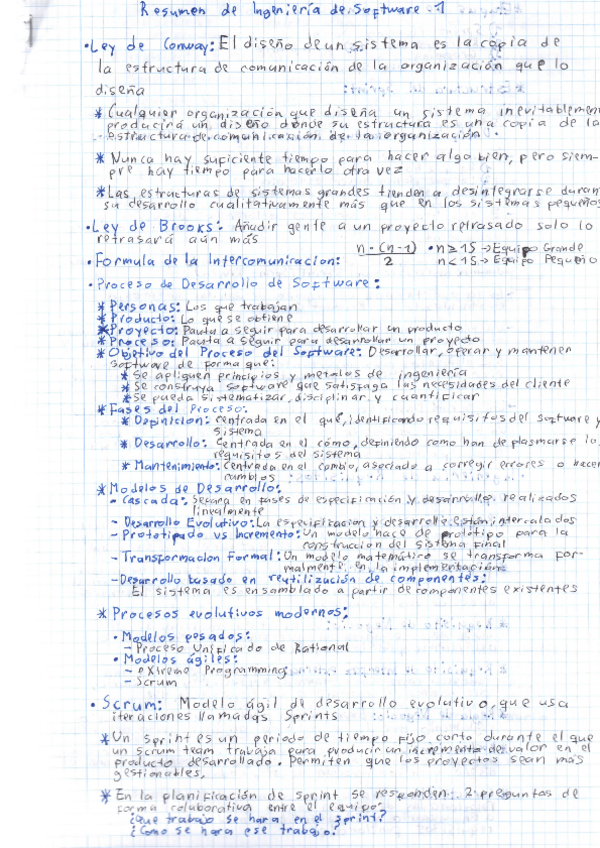 Resumen de Ingeniería de Software - 1
• Ley de Conway: El diseño de un sistema es la copia de
la estructura de comunicación de la organización que lo
diseña
* Cualquier organización que diseña un sistema inevitablemen
producirá un diseño donde su estructura es una copia de la
estructura de comunicación de la organización.
* Nunca hay suficiente tiempo para hacer algo bien, pero siem-
pre hay tiempo para hacerlo otra vez
* Las estructuras de sistemas grandes tienden a desintegrarse duran
su desarrollo cualitativamente más que en los sistemas pequeños
• Ley de Brooks: Añadir gente a un proyecto retrasado solo lo
retrasará aún más
• Formula de la Intercomunicacion: n·(n-1) / 2 • n≥15→Equipo Grande
n<15→Equipo Pequeño
• Proceso de Desarrollo de Software:
* Personas: Los que trabajan
* Producto: Lo que se obtiene
* Proyecto: Pauta a seguir para desarrollar un producto
* Proceso: Pauta a seguir para desarrollar un proyecto
* Objetivo del Proceso del Software: Desarrollar, operar y mantener
software de forma que:
* Se apliquen principios y metodos de ingeniería
* Se construya software que satisfaga las necesidades del cliente
* Se pueda sistematizar, disciplinar y cuantificar
* Fases del Proceso:
* Definicion: centrada en el qué, identificando requisitos del software y
sistema
* Desarrollo: Centrada en el cómo, definiendo como han de plasmarse lo
requisitos del sistema
* Mantenimiento: Centrada en el cambio, asociado a corregir errores o hacer
cambios
* Modelos de Desarrollo:
- Cascada: Separa en fases de especificación y desarrollo realizados
linealmente
- Desarrollo Evolutivo: La especificacion y desarrollo están intercalados
- Prototipado vs Incremento: Un modelo hace de prototipo para la
construccion del sistema final
- Transformacion Formal: Un modelo matemático se transforma for-
malmente en la implementación
- Desarrollo basado en reutilización de componentes:
El sistema es ensamblado a partir de componentes existentes
* Procesos evolutivos modernos:
• Modelos pesados:
- Proceso Unificado de Rational
• Modelos ágiles:
- eXtreme Programming
- Scrum
• Scrum: Modelo ágil de desarrollo evolutivo, que usa
iteraciones llamadas Sprints
* Un Sprint es un periodo de tiempo fijo corto durante el que
un Scrum team trabaja para producir un incremento de valor en el
producto desarrollado. Permiten que los proyectos sean más
gestionables.
* En la planificación de sprint se responden 2 preguntas de
forma colaborativa entre el equipo:
¿Que trabajo se hara en el sprint?
¿Como se hara ese trabajo?